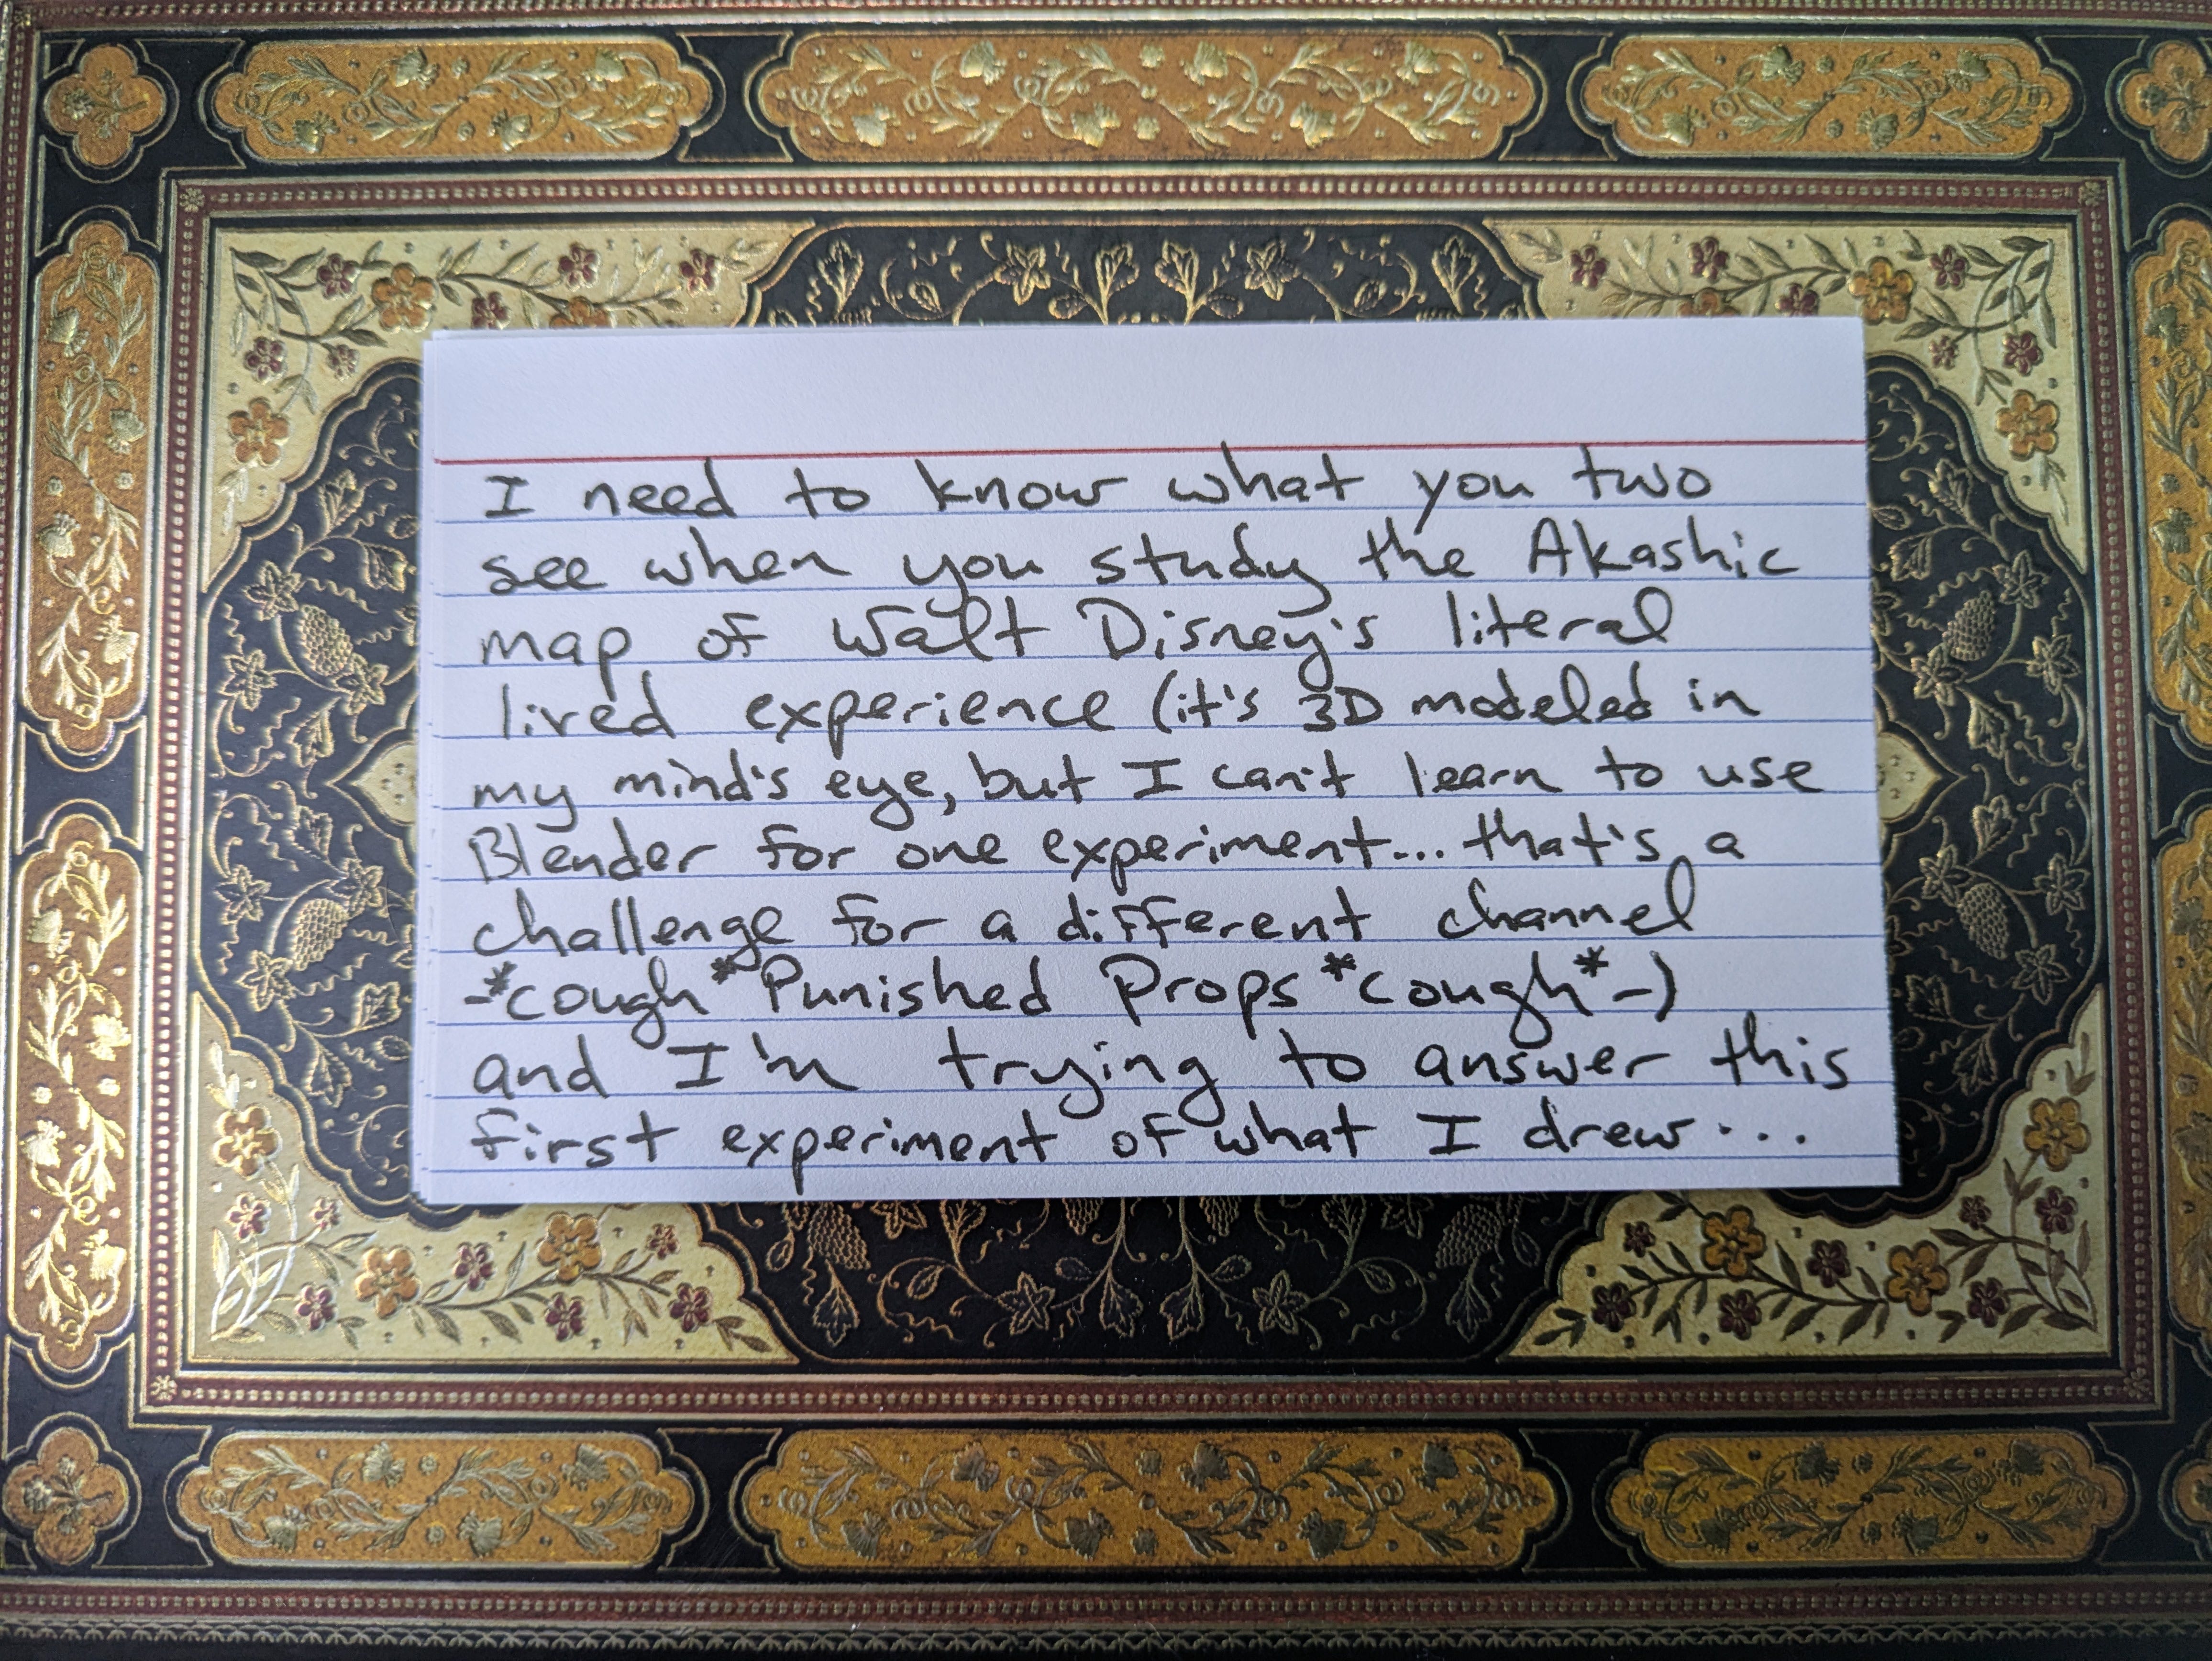 I need to know what you two
see when you study the Akashic
map of Walt Disney's literal
lived experience (it's 3D modeled in
my mind's eye, but I can't learn to use
Blender for one experiment... that's a
challenge for a different channel
-*cough* Punished Props *cough*-)
and I'm trying to answer this
first experiment of what I drew...